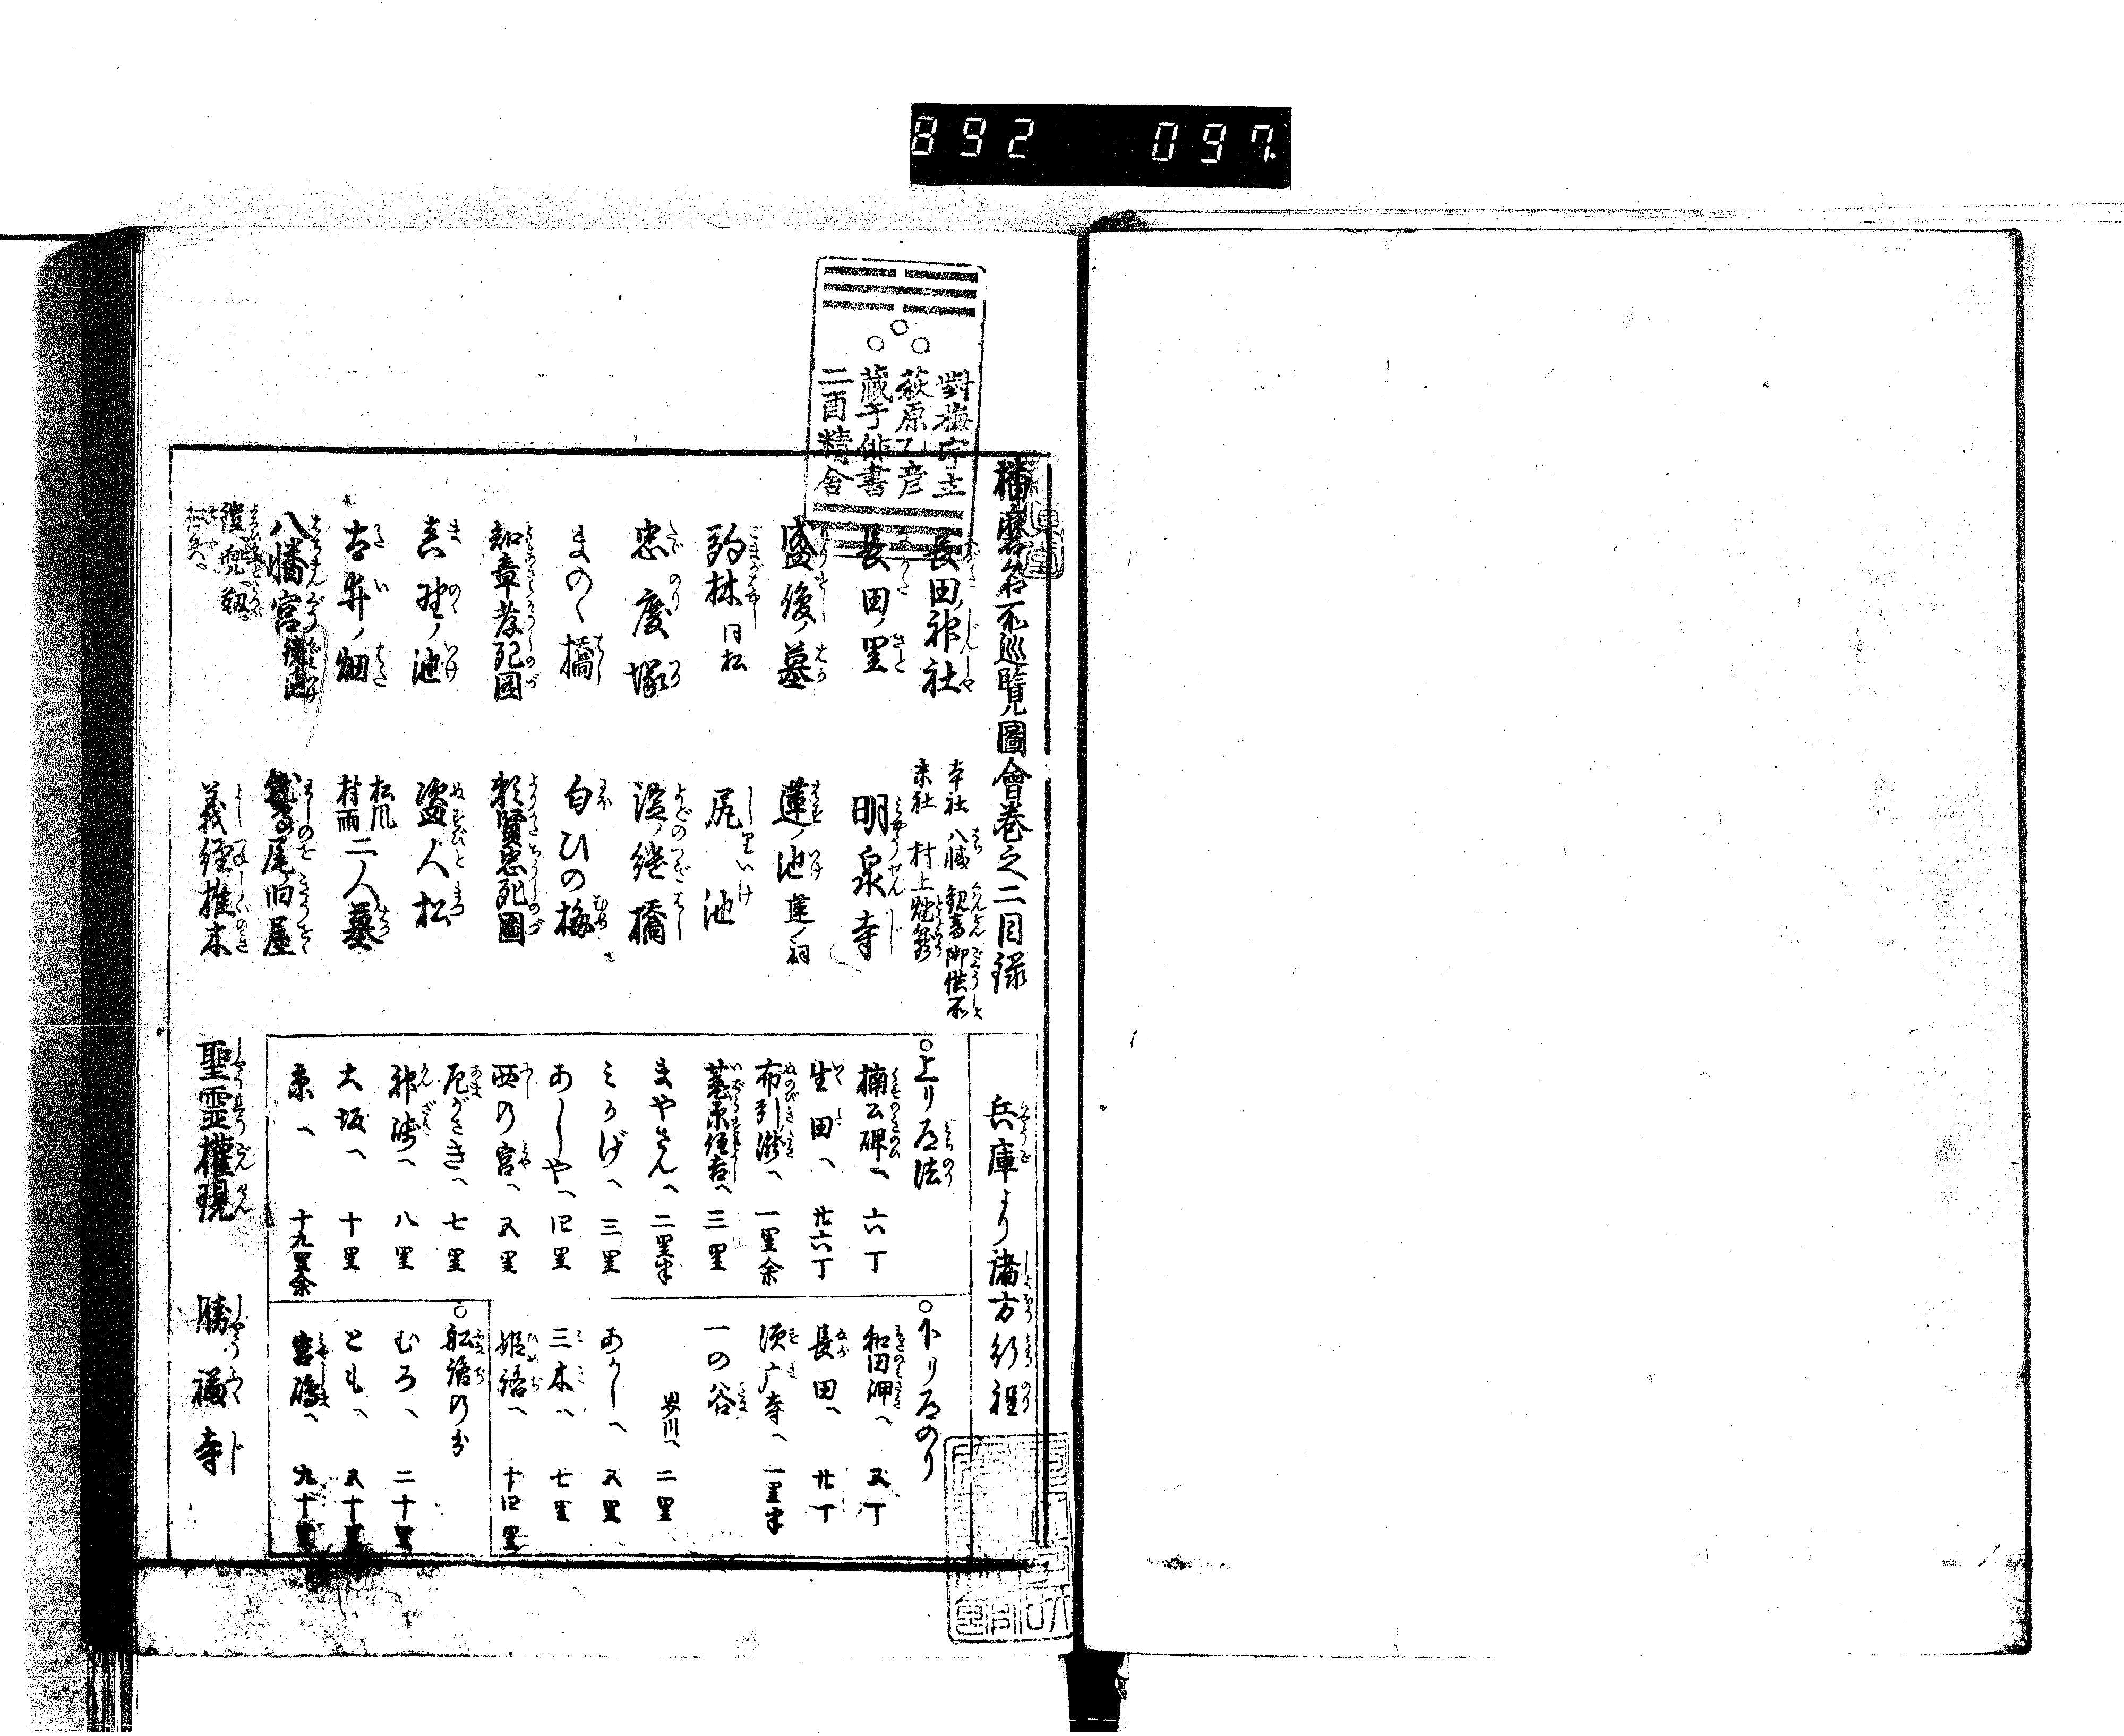 892 097
對梅宇主
萩原乙彦
藏于俳書
二酉精舎
播磨名所巡覧圖會巻之二目録
長田ノ神社
本社 八幡 観音 御供所
末社 村上
長田ノ里
明泉寺
盛俊ノ墓
蓮ノ池 蓮ノ祠
駒林 同松
尻池
忠度塚
淀ノ継橋
まのゝ橋
匂ひの梅
知章孝死図
頼賢忠死圖
真野ノ池
盗人松
古井ノ畑
松風
村雨 二人墓
八幡宮
鷲尾ノ旧屋
鎧 兜 靱
義経椎木
聖霊權現
勝福寺
兵庫より諸方行程
○上り道法
楠公碑へ 六丁
生田へ 廿六丁
布引滝へ 一里余
菟原住吉へ 三里
まやさんへ 二里半
みかげへ 三里
あしやへ 四里
西の宮へ 五里
尼がさきへ 七里
神崎へ 八里
大坂へ 十里
京へ 十九里余
○下り道のり
和田岬へ 五丁
長田へ 廿丁
須广寺へ 一里半
一の谷
界川へ 二里
あかしへ 五里
三木へ 七里
姫路へ 十四里
○舩路の分
むろへ 二十里
ともへ 五十里
宮嶋へ 九十里